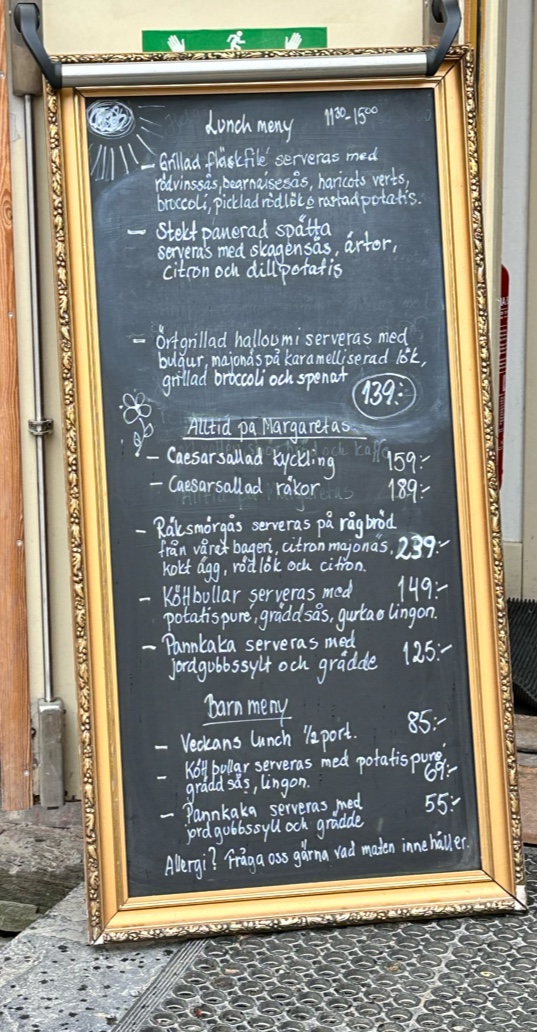 Lunch meny 11³⁰-15⁰⁰
- Grillad fläskfilé serveras med
rödvinssås, bearnaisesås, haricots verts,
broccoli, picklad rödlök & rostad potatis.
- Stekt panerad spätta
serveras med skagensås, ärtor,
citron och dillpotatis
- Örtgrillad halloumi serveras med
bulgur, majonäs på karamelliserad lök,
grillad broccoli och spenat
139:-
Alltid på Margaretas
- Caesarsallad kyckling 159:-
- Caesarsallad räkor 189:-
- Räksmörgås serveras på rågbröd
från vårat bageri, citron majonäs, 239:-
kokt ägg, rödlök och citron.
- Köttbullar serveras med 149:-
potatispuré, gräddsås, gurka o lingon.
- Pannkaka serveras med
jordgubbssylt och grädde 125:-
Barn meny
- Veckans lunch ½ port. 85:-
- Köttbullar serveras med potatispuré,
gräddsås, lingon. 69:-
- Pannkaka serveras med 55:-
jordgubbssyll och grädde
Allergi? Fråga oss gärna vad maten innehåller.